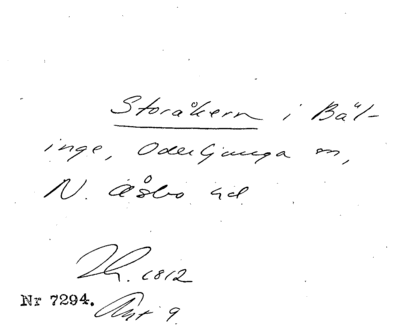 Storåkern i Bäl-
inge, Oderljunga sn,
N. Åsbo hd
Th. 1812
Nr 7294.
Akt 9.